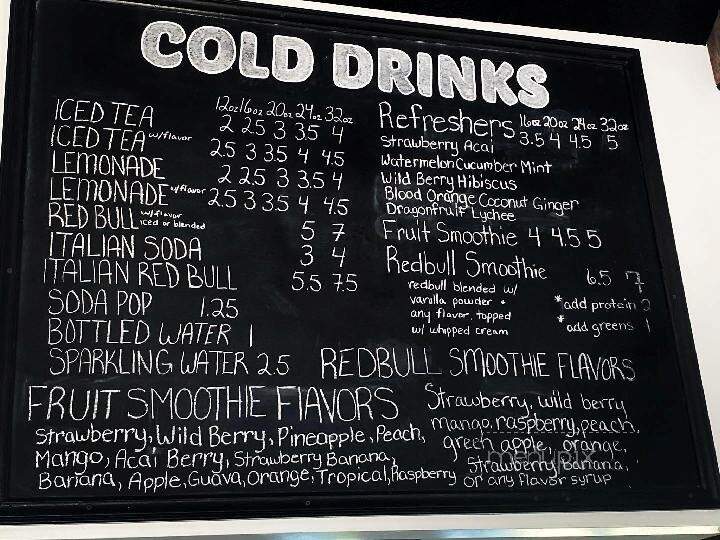 COLD DRINKS
12oz 16oz 20oz 24oz 32oz
ICED TEA 2 2.5 3 3.5 4
ICED TEA w/flavor 2.5 3 3.5 4 4.5
LEMONADE 2 2.5 3 3.5 4
LEMONADE w/flavor 2.5 3 3.5 4 4.5
RED BULL w/flavor iced or blended 5 7
ITALIAN SODA 3 4
ITALIAN RED BULL 5.5 7.5
SODA POP 1.25
BOTTLED WATER 1
SPARKLING WATER 2.5
Refreshers 16oz 20oz 24oz 32oz
3.5 4 4.5 5
Strawberry Acai
Watermelon Cucumber Mint
Wild Berry Hibiscus
Blood Orange Coconut Ginger
Dragonfruit Lychee
Fruit Smoothie 4 4.5 5
Redbull Smoothie 6.5 7
redbull blended w/
vanilla powder +
any flavor, topped
w/ whipped cream
*add protein 2
*add greens 1
FRUIT SMOOTHIE FLAVORS
Strawberry, Wild Berry, Pineapple, Peach,
Mango, Acai Berry, Strawberry Banana,
Banana, Apple, Guava, Orange, Tropical, Raspberry
REDBULL SMOOTHIE FLAVORS
Strawberry, wild berry
mango, raspberry, peach,
green apple, orange,
Strawberry banana,
or any flavor syrup